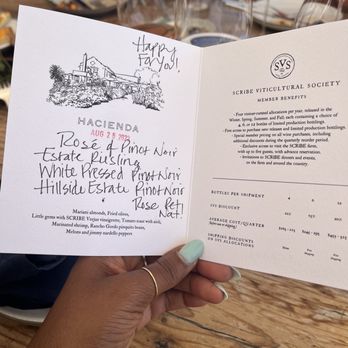 Happy
HACIENDA
AUG 25 2023
Rosé of Pinot Noir
Estate Riesling
White Pressed Pinot Noir
Hillside Estate Pinot Noir
Rose Pet
Nat!
Mariani almonds, Fried olives,
Little gems with SCRIBE Verjus vinaigrette, Tomato toast with aioli,
Marinated shrimp, Rancho Gordo piquito beans,
Melons and jimmy nardello peppers
SVS
SCRIBE VITICULTURAL SOCIETY
MEMBER BENEFITS
- Four visitor-curated allocations per year, released in the
Winter, Spring, Summer, and Fall; each containing a choice of
4, 6, or 12 bottles of limited production bottlings.
- First access to purchase new releases and limited production bottlings.
- Special member pricing on all wine purchases, including
additional discounts during the quarterly reorder period.
- Exclusive access to visit the SCRIBE farm,
with up to five guests, with advance reservation.
- Invitations to SCRIBE dinners and events,
on the farm and around the country.
BOTTLES PER SHIPMENT
4
6
12
SVS DISCOUNT
AVERAGE COST/QUARTER
SHIPPING DISCOUNTS
ON SVS ALLOCATIONS